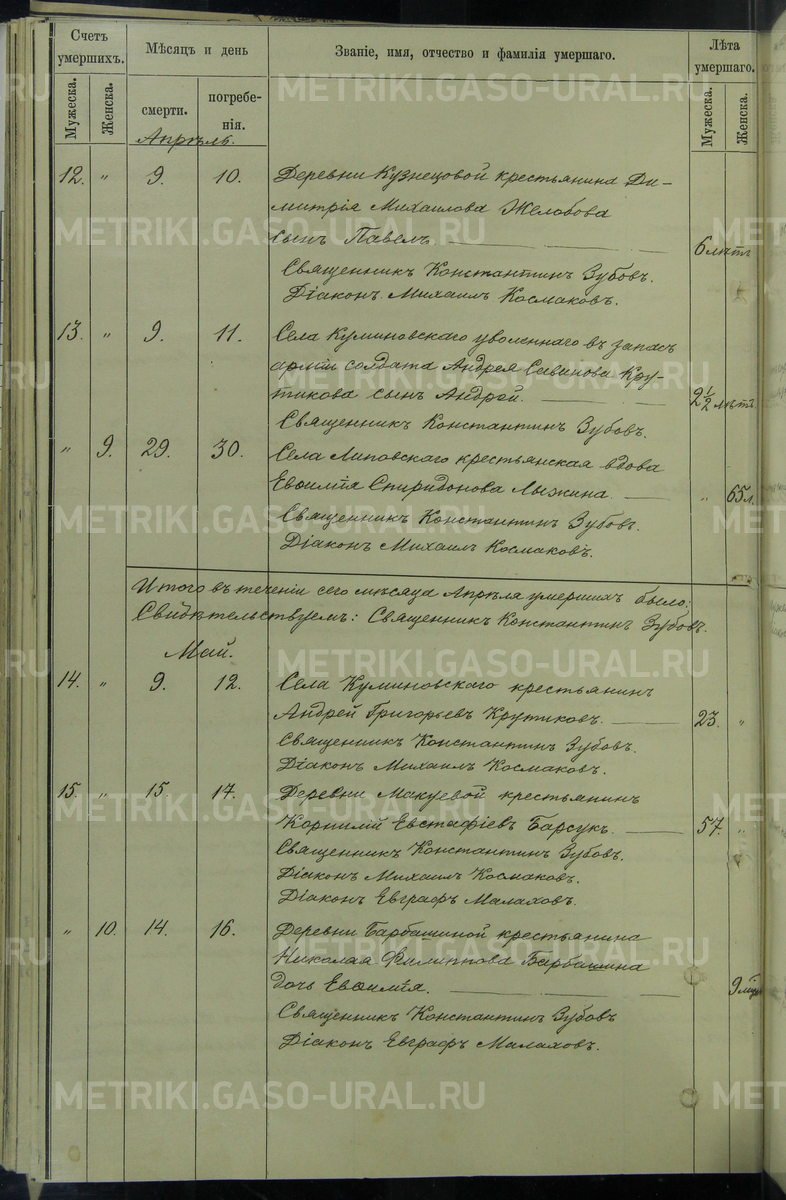 Счетъ умершихъ.
Мѣсяцъ и день
Званіе, имя, отчество и фамилія умершаго.
Лѣта умершаго.
Мужеска.
Женска.
смерти.
погребе-
нія.
Мужеска.
Женска.
Апрѣль.
12. " 9. 10. Деревни Кузнецовой крестьянина Ди-
митрія Михаилова Желобова
сынъ Павелъ. 6 лѣтъ
Священникъ Константинъ Зубовъ.
Діаконъ Михаилъ Космаковъ.
13. " 9. 11. Села Куминовскаго уволеннаго въ запасъ
арміи солдата Андрея Савинова Кру-
тикова сынъ Андрей. 2 1/2 лѣтъ
Священникъ Константинъ Зубовъ.
" 9. 29. 30. Села Липовскаго крестьянская вдова
Евѳимія Спиридонова Лыжина. " 65 л.
Священникъ Константинъ Зубовъ.
Діаконъ Михаилъ Космаковъ.
Итого въ теченіи сего мѣсяца Апрѣля умершихъ было:
Свидѣтельствуемъ: Священникъ Константинъ Зубовъ.
Май.
14. " 9. 12. Села Куминовскаго крестьянин
Андрей Григорьевъ Крутиковъ. 23. "
Священникъ Константинъ Зубовъ.
Діаконъ Михаилъ Космаковъ.
15. " 15. 17. Деревни Макуевой крестьянинъ
Корнилій Евстафіевъ Барсукъ. 57. "
Священникъ Константинъ Зубовъ.
Діаконъ Михаилъ Космаковъ.
Діаконъ Евграфъ Малаховъ.
" 10. 14. 16. Деревни Барбашиной крестьянина
Николая Филиппова Барбашина
дочь Евѳимія. 9
Священникъ Константинъ Зубовъ
Діаконъ Евграфъ Малаховъ.
METRIKI.GASO-URAL.RU